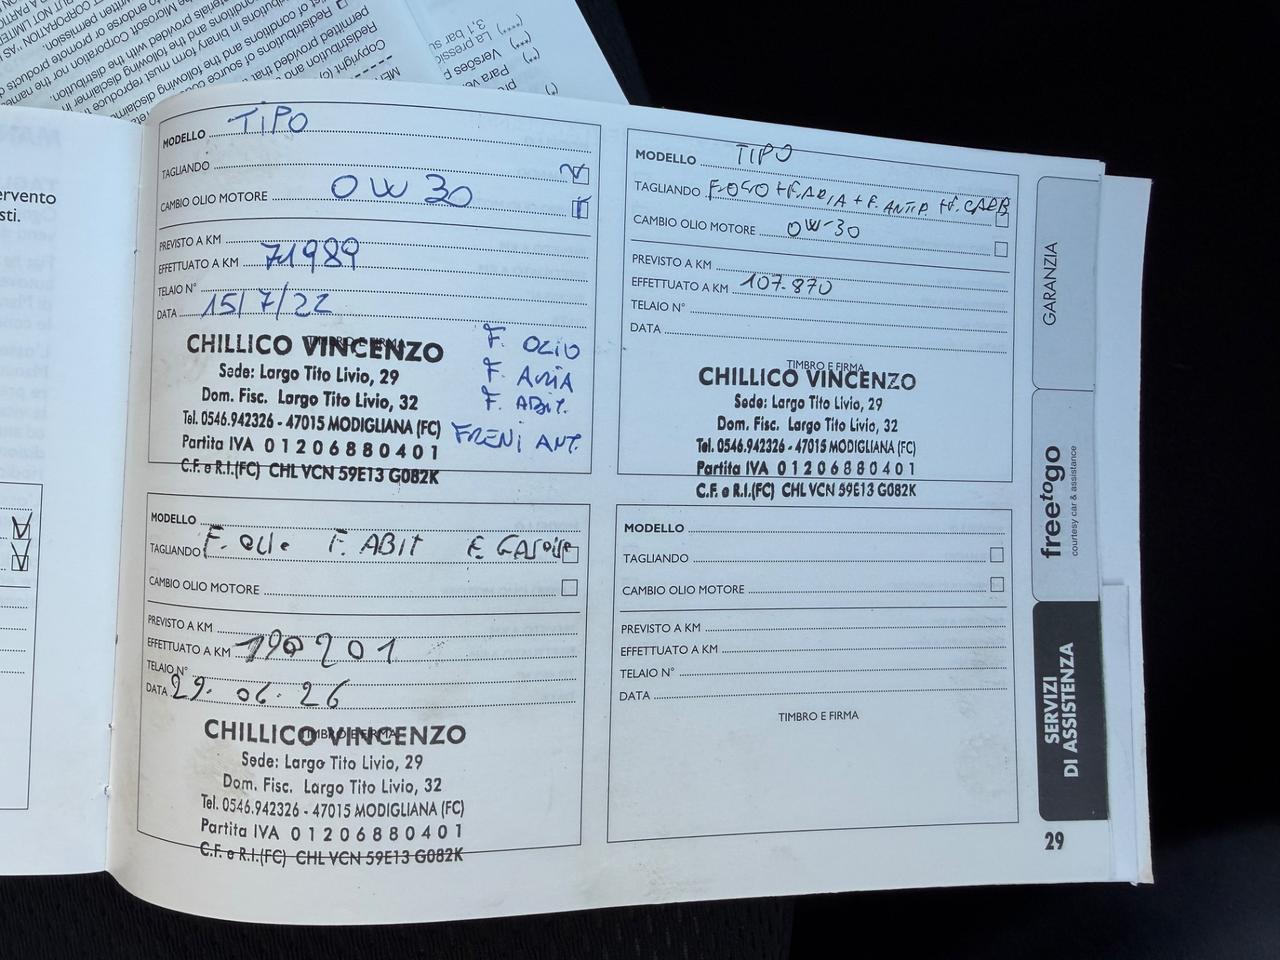 MODELLO TIPO
TAGLIANDO
CAMBIO OLIO MOTORE 0W30
PREVISTO A KM
EFFETTUATO A KM 71989
TELAIO N°
DATA 15/7/22
TIMBRO E FIRMA
CHILLICO VINCENZO
Sede: Largo Tito Livio, 29
Dom. Fisc. Largo Tito Livio, 32
Tel. 0546.942326 - 47015 MODIGLIANA (FC)
Partita IVA 0 1 2 0 6 8 8 0 4 0 1
C.F. e R.I.(FC) CHL VCN 59E13 G082K
F. OLIO
F. ARIA
F. ABIT.
FRENI ANT.
MODELLO TIPO
TAGLIANDO F.OLIO + F.ARIA + F. ANTIP. + F. CARB
CAMBIO OLIO MOTORE 0W-30
PREVISTO A KM
EFFETTUATO A KM 107.870
TELAIO N°
DATA
TIMBRO E FIRMA
CHILLICO VINCENZO
Sede: Largo Tito Livio, 29
Dom. Fisc. Largo Tito Livio, 32
Tel. 0546.942326 - 47015 MODIGLIANA (FC)
Partita IVA 0 1 2 0 6 8 8 0 4 0 1
C.F. e R.I.(FC) CHL VCN 59E13 G082K
MODELLO
TAGLIANDO F. Olio F. ABIT F. GASOLIO
CAMBIO OLIO MOTORE
PREVISTO A KM
EFFETTUATO A KM 190201
TELAIO N°
DATA 29. 06. 26
TIMBRO E FIRMA
CHILLICO VINCENZO
Sede: Largo Tito Livio, 29
Dom. Fisc. Largo Tito Livio, 32
Tel. 0546.942326 - 47015 MODIGLIANA (FC)
Partita IVA 0 1 2 0 6 8 8 0 4 0 1
C.F. e R.I.(FC) CHL VCN 59E13 G082K
MODELLO
TAGLIANDO
CAMBIO OLIO MOTORE
PREVISTO A KM
EFFETTUATO A KM
TELAIO N°
DATA
TIMBRO E FIRMA
GARANZIA
freetogo
courtesy car & assistance
SERVIZI
DI ASSISTENZA
29